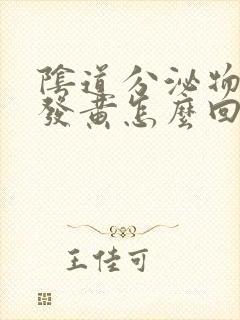 陰道分泌物
發黃怎麼回
王佳可